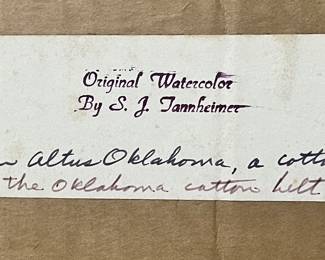 Original Watercolor
By S. J. Tannheimer
Altus Oklahoma, a
the Oklahoma cotton belt